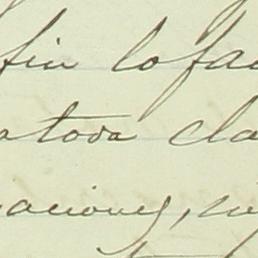 fin lo fa
atoda cla
aciones, si